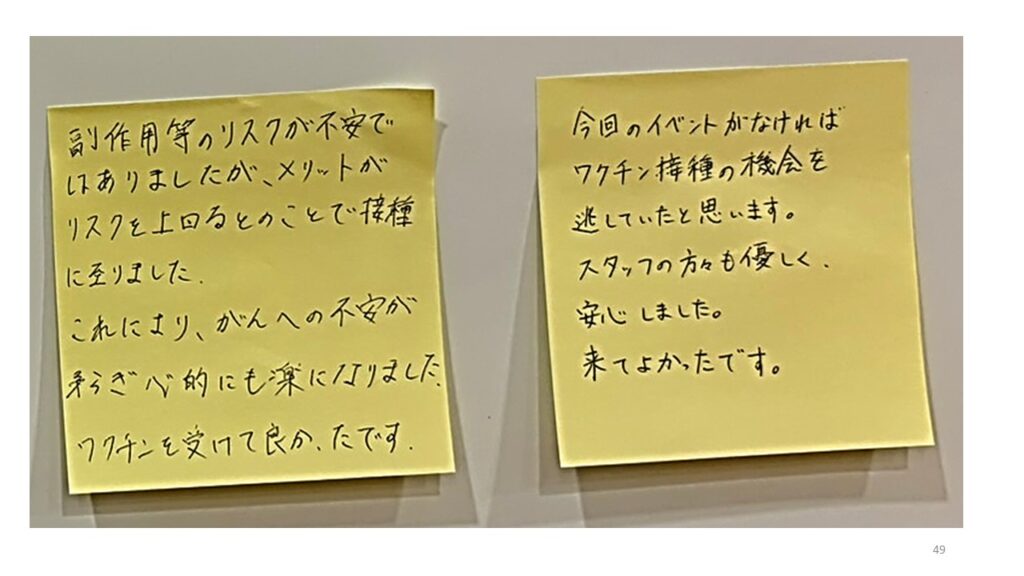 副作用等のリスクが不安で
はありましたが、メリットが
リスクを上回るとのことで接種
に至りました.
これにより、がんへの不安が
和らぎ心的にも楽になりました.
ワクチンを受けて良かったです.
今回のイベントがなければ
ワクチン接種の機会を
逃していたと思います。
スタッフの方々も優しく、
安心しました。
来てよかったです。
49